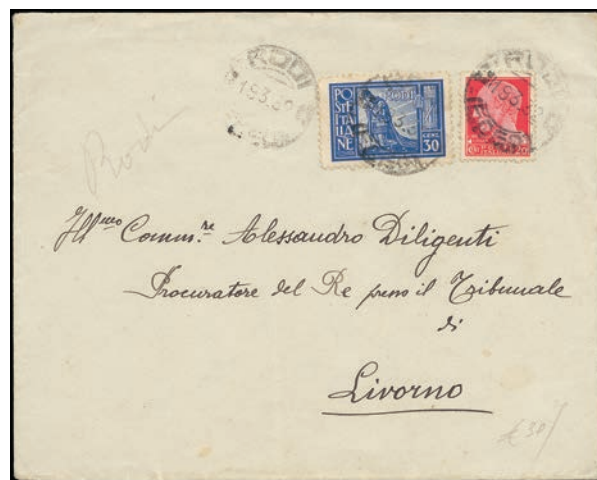 RODI
RODI
Rodi
POSTE ITALIANE
RODI
CENT.
30
Ill.mo Comm.re Alessandro Diligenti
Procuratore del Re presso il Tribunale
di
Livorno